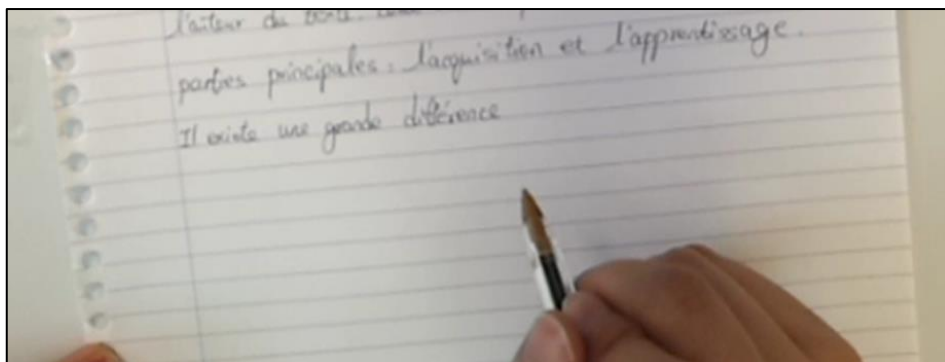 l'auteur du texte.
parties principales : l'acquisition et l'apprentissage.
Il existe une grande différence